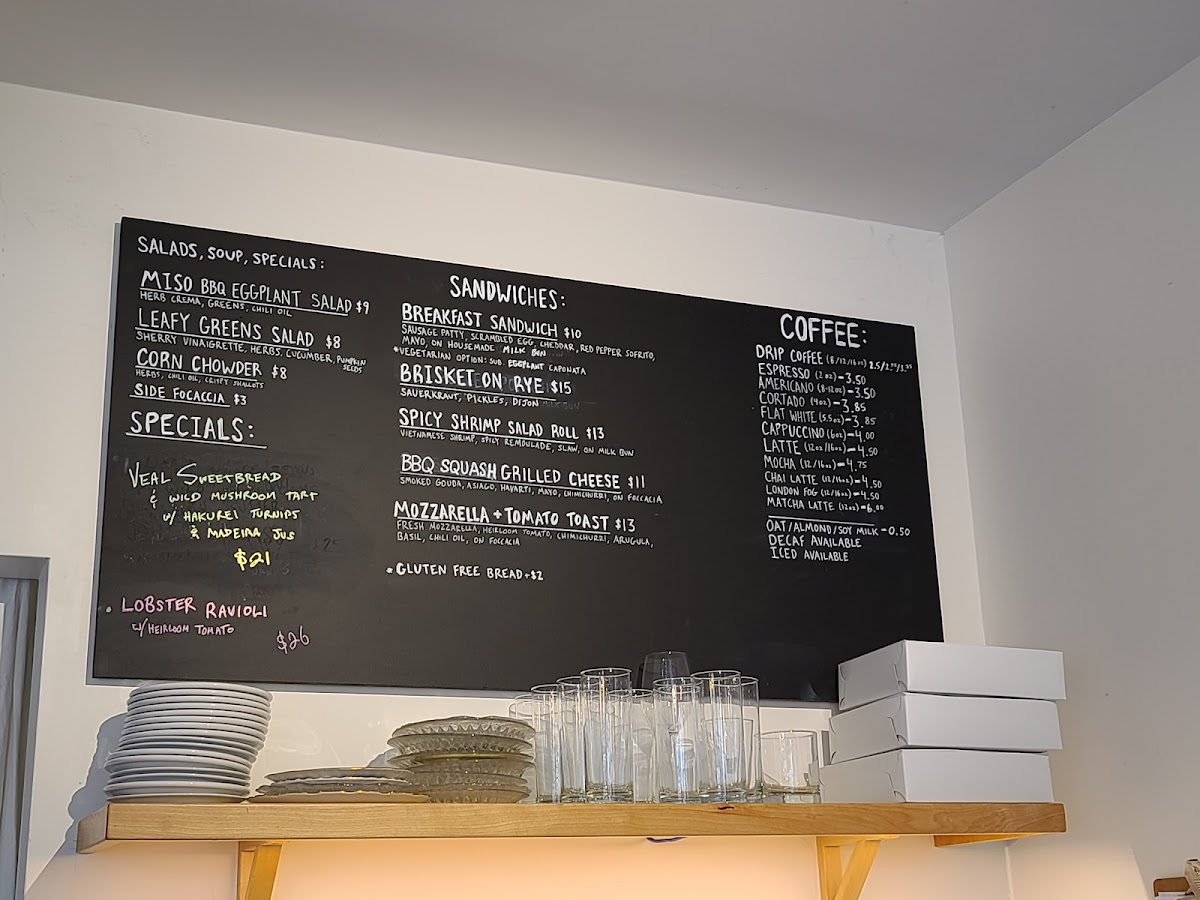 SALADS, SOUP, SPECIALS:
MISO BBQ EGGPLANT SALAD $9
HERB CREMA, GREENS, CHILI OIL
LEAFY GREENS SALAD $8
SHERRY VINAIGRETTE, HERBS, CUCUMBER, PUMPKIN
SEEDS
CORN CHOWDER $8
HERBS, CHILI OIL, CRISPY SHALLOTS
SIDE FOCACCIA $3
SPECIALS:
VEAL SWEETBREAD
& WILD MUSHROOM TART
W/ HAKUREI TURNIPS
& MADEIRA JUS
$21
• LOBSTER RAVIOLI
W/ HEIRLOOM TOMATO
$26
SANDWICHES:
BREAKFAST SANDWICH $10
SAUSAGE PATTY, SCRAMBLED EGG, CHEDDAR, RED PEPPER SOFRITO,
MAYO, ON HOUSEMADE MILK BUN
*VEGETARIAN OPTION: SUB EGGPLANT CAPONATA
BRISKET ON RYE $15
SAUERKRAUT, PICKLES, DIJON
SPICY SHRIMP SALAD ROLL $13
VIETNAMESE SHRIMP, SPICY REMOULADE, SLAW, ON MILK BUN
BBQ SQUASH GRILLED CHEESE $11
SMOKED GOUDA, ASIAGO, HAVARTI, MAYO, CHIMICHURRI, ON FOCCACIA
MOZZARELLA + TOMATO TOAST $13
FRESH MOZZARELLA, HEIRLOOM TOMATO, CHIMICHURRI, ARUGULA,
BASIL, CHILI OIL, ON FOCCACIA
* GLUTEN FREE BREAD +$2
COFFEE:
DRIP COFFEE (8/12/16oz) 2.5/
ESPRESSO (2oz) - 3.50
AMERICANO (8-12oz) - 3.50
CORTADO (4oz) - 3.85
FLAT WHITE (5.5oz) - 3.85
CAPPUCCINO (6oz) - 4.00
LATTE (12oz/16oz) - 4.50
MOCHA (12/16oz) - 4.75
CHAI LATTE (12/16oz) - 4.50
LONDON FOG (12/16oz) - 4.50
MATCHA LATTE (12oz) - 6.00
OAT/ALMOND/SOY MILK - 0.50
DECAF AVAILABLE
ICED AVAILABLE